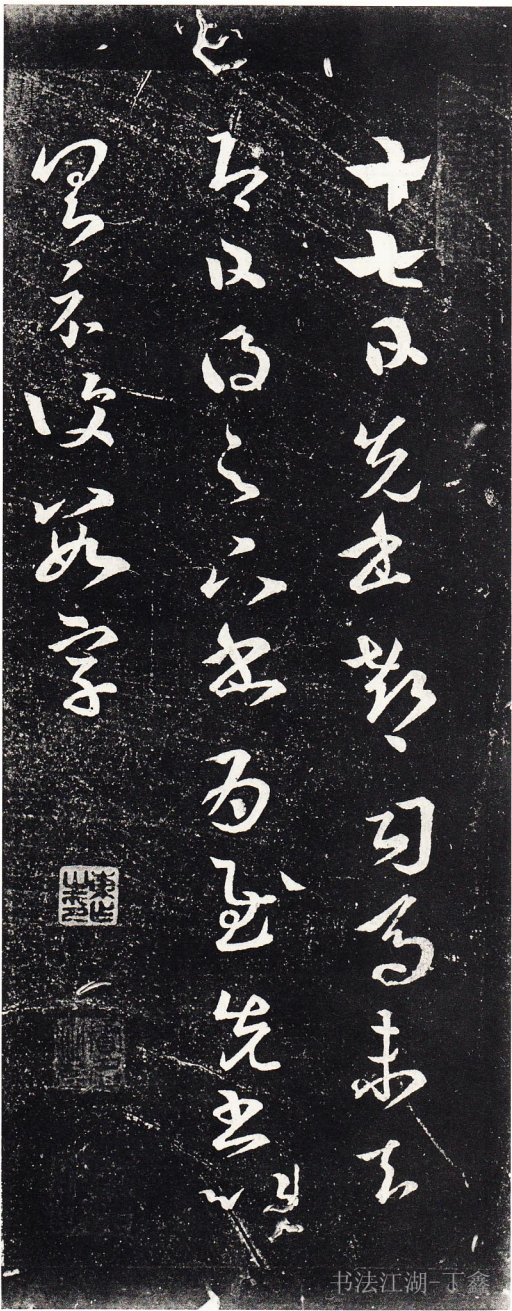 十七日先書郗司馬未去
即日得足下書為慰先書以
具示復數字
书法江湖-丁鑫